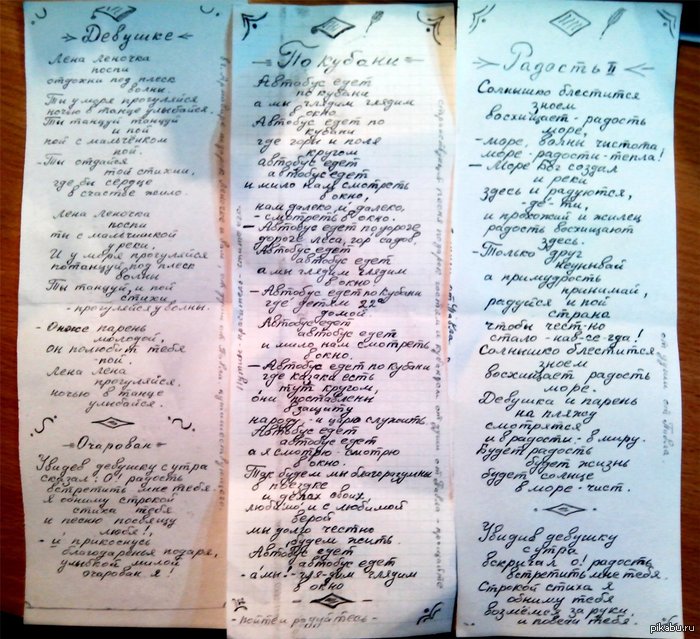 Девушке
Лена Леночка
поспи
отдохни под плеск
волны.
Ты у моря прогуляйся
ночью в танце улыбайся.
Ты танцуй танцуй
и пой
пой с мальчёнком
пой.
- Ты отдайся
той стихии,
где бы сердце
в счастье жило.
Лена Леночка
поспи
ты с мальчишкой
у реки,
И у моря прогуляйся
потанцуй под плеск
волны
Ты танцуй, и пой
стихи
- прогуляйся у волны.
- парень
молодой,
он полюбит тебя
- пой.
Лена Лена
прогуляйся,
ночью в танце
улыбайся.
Очарован
Увидев девушку с утра
сказал: О! радость
встретить мне тебя.
Я обниму строкой
стиха тебя
и песню посвящу
любя!,
- и прикоснусь
благодаренья подаря,
улыбкой милой
очарован я!
По кубани
Автобус едет
по кубани
а мы глядим глядим
в окно.
Автобус едет по
кубани
где горы и поля
кругом
автобус едет
автобус едет
и мило нам смотреть
в окно,
нам далеко и далеко,
- смотреть в окно.
- Автобус едет по дороге
дороге леса, гор садов,
Автобус едет
автобус едет
а мы глядим глядим
в окно
- Автобус едет по кубани
где детям
домой.
Автобус едет
автобус едет
и мило нам смотреть
в окно.
- Автобус едет по кубани
где казаки есть
тут кругом,
они поставлены
в защиту
народу, - и царю служить
Автобус едет
автобус едет
а я смотрю - смотрю
в окно.
Так будем мы благоразумны
в поездке
и делах своих
любимо и с любимой
верой
мы долго честно
будем жить.
Автобус едет
автобус едет
а мы - гля-дим глядим
в окно
- пойте и радуйтесь -
Радость II
Солнышко блестится
зноем
восхищает - радость
море,
- море, волны чистота
море - радости - тепла!
- Море Бог создал
и реки
здесь и радуются,
- де - ти,
и прохожий и жилец
радость восхищают
здесь.
Только друг
не унывай
а примудрость
принимай,
радуйся и пой
страна
чтобы чест-но
стало - нав-се-гда!
Солнышко блестится
зноем
восхищает радость
море.
Девушка и парень
на пляжу
смотрятся
и в радости - в миру.
Будет радость
будет жизнь
будет солнце
в море - чист.
Увидив девушку
с утра
вскричал о! радость
встретить мне тебя.
Строкой стиха я
обниму тебя
возмём за руки
и повёл тебя.
pikabu.ru